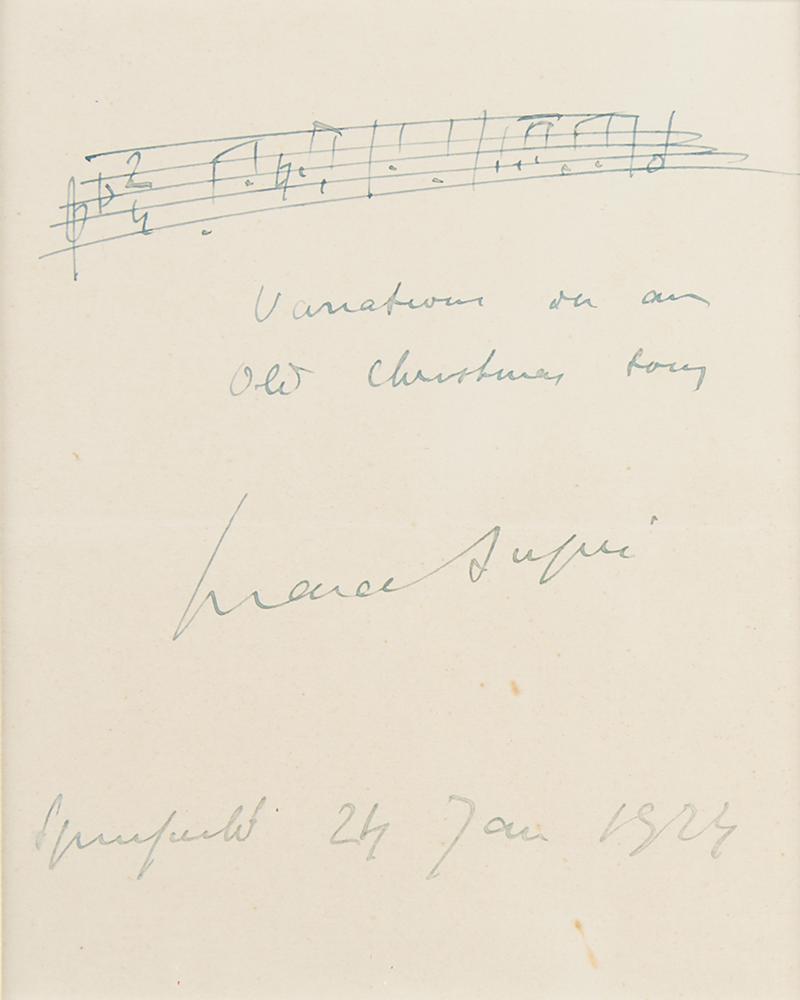 2
4
Variations on an
Old Christmas song
Marcel Dupré
Springfield 24 Jan 1924